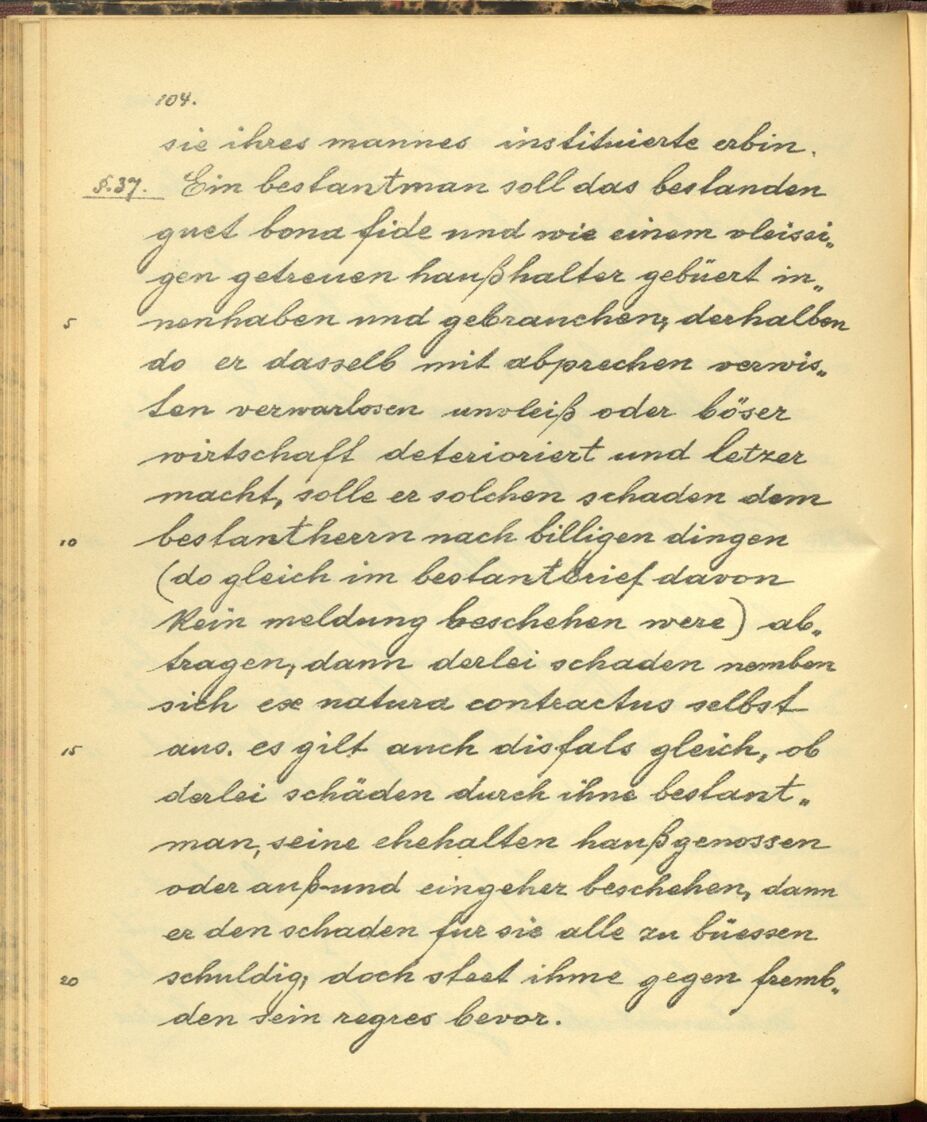 104.
sie ihres mannes instituierte erbin.
§.37. Ein bestantman soll das bestanden
guet bona fide und wie einem vleissi„
gen getreuen haußhalter gebüert in„
5 nenhaben und gebrauchen; derhalben
do er dasselb mit abprechen verwis„
ten verwarlosen unvleiß oder böser
wirtschaft deterioriert und letzer
macht, solle er solchen schaden dem
10 bestantherrn nach billigen dingen
(do gleich im bestantbrief davon
kein meldung beschehen were) ab„
tragen, dann derlei schaden nemben
sich ex natura contractus selbst
15 aus. es gilt auch disfals gleich, ob
derlei schäden durch ihne bestant„
man, seine ehehalten haußgenossen
oder auß-und eingeher beschehen, dann
er den schaden fur sie alle zu büessen
20 schuldig; doch steet ihme gegen fremb„
den sein regres bevor.